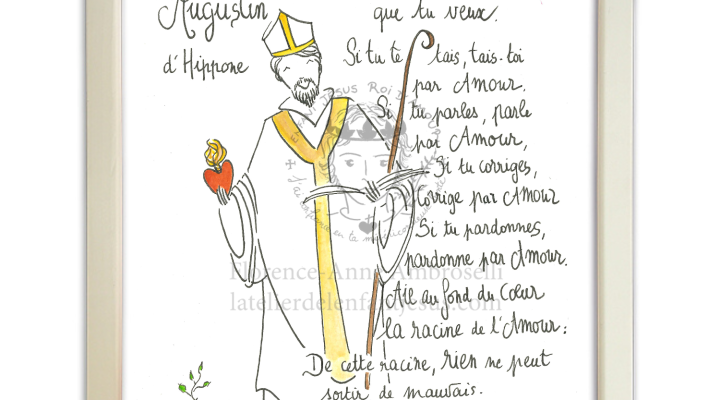 Augustin
d'Hippone
que tu veux.
Si tu te tais, tais-toi
par Amour.
Si tu parles, parle
par Amour,
Si tu corriges,
Corrige par Amour
Si tu pardonnes,
pardonne par Amour.
Aie au fond du Cœur
la racine de l'Amour:
De cette racine, rien ne peut
sortir de mauvais.
Florence-Anne Ambroselli